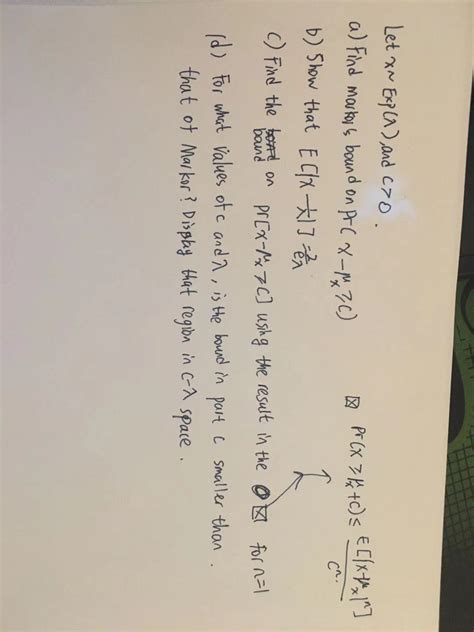 Let x ~ Exp(λ) and c > 0.
a) Find markov's bound on pr( x - μx ≥ c)
b) Show that E[|x - 1/λ|] = 2/eλ
⊠ pr(x ≥ μx + c) ≤ E[|x-μx|^n] / c^n.
c) Find the bound on pr[x-μx ≥ c] using the result in the ⊠ for n=1
(d) For what values of c and λ, is the bound in part c smaller than
that of Markov? Display that region in c-λ space.